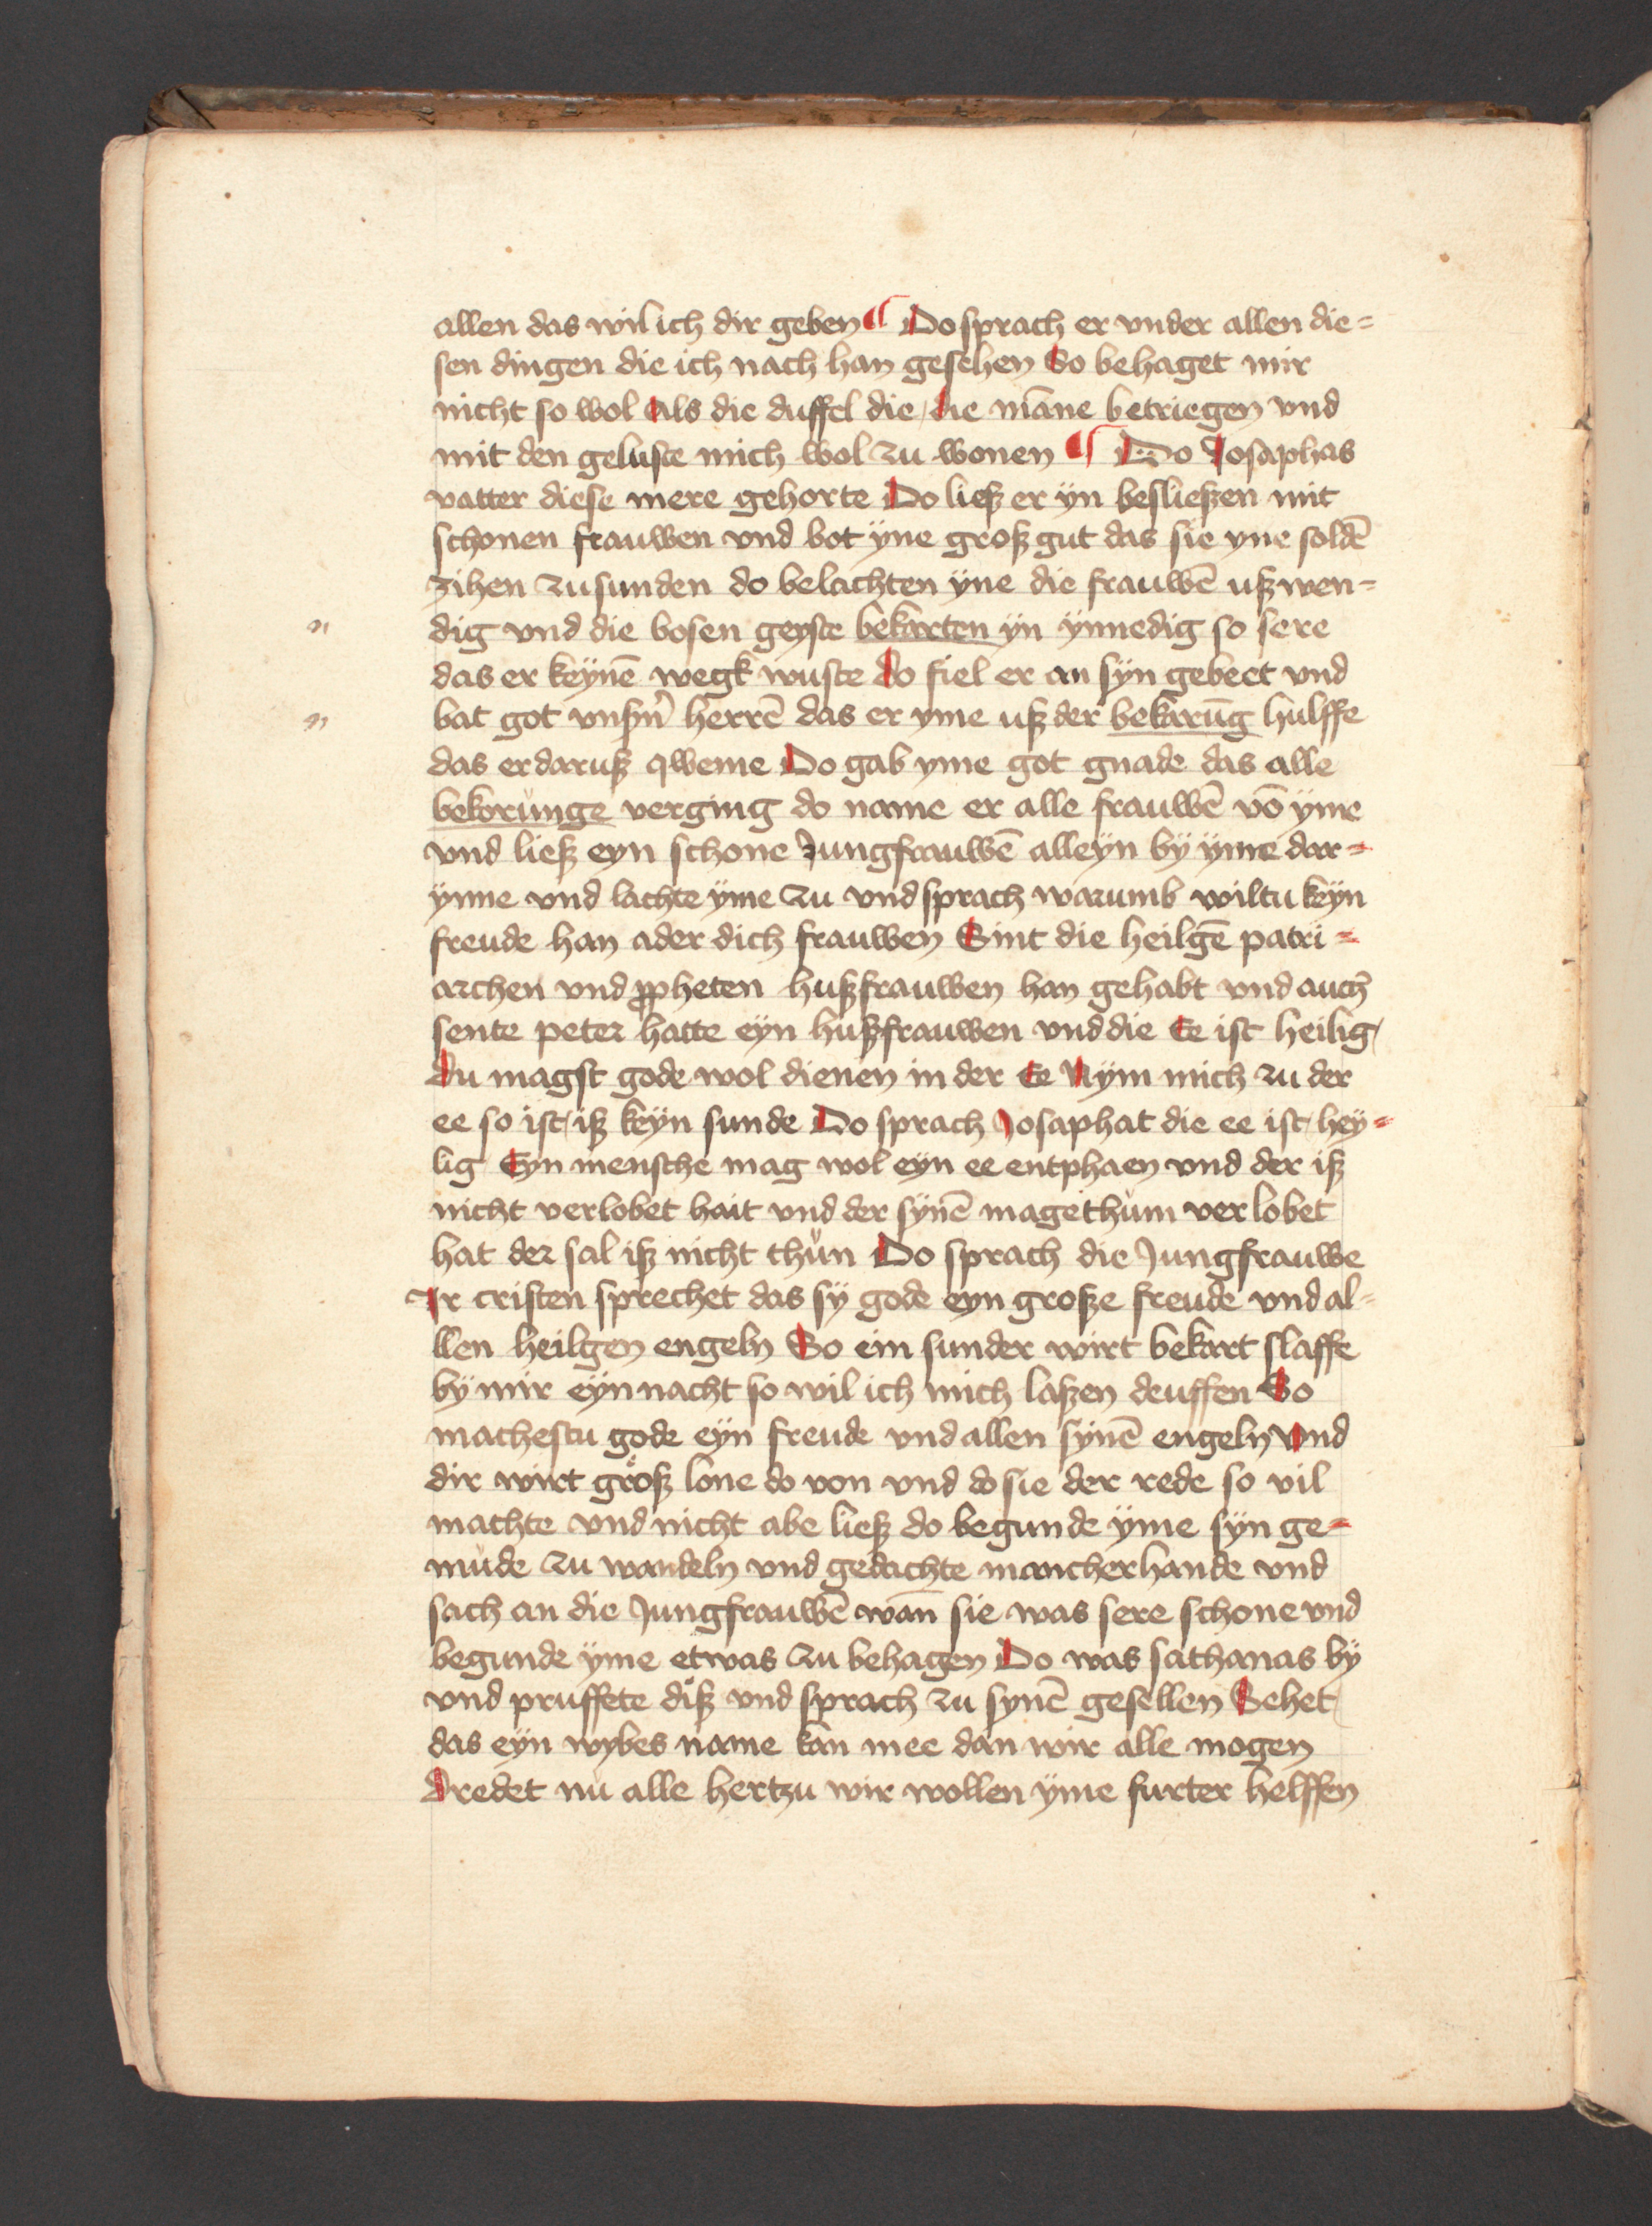 allen das wil ich dir geben ¶ Do sprach er vnder allen die=
sen dingen die ich nach han gesehen So behaget mir
nicht so wol als die duffel die die mãne betriegen vnd
mit den geluste mich wol zu wonen ¶ Do Josaphas
vatter diese mere gehorte Do ließ er ÿn besließen mit
schonen frauwen vnd bot ÿne groß gut das sie yne soldē
zihen zu sunden do belachten ÿne die frauwē uß wen=
dig vnd die bosen geyste bekarten ÿn ÿnnedig so sere
das er keÿnē wegk wuste do fiel er an sÿn gebeet vnd
bat got vnsn̄ herrē das er yme uß der bekarūg hulffe
das er daruß qweme Do gab yme got gnade das alle
bekorunge verging do name er alle frauwē vō ÿme
vnd ließ eyn schone Jungfrauwē alleÿn bÿ ÿme dar=
ÿnne vnd lachte ÿme zu vnd sprach warumb wiltu keÿn
freude han ader dich frauwen Sint die heilgē patri=
archen vnd ꝓpheten hußfrauwen han gehabt vnd auch
sente peter hatte eÿn hußfrauwen vnd die Ee ist heilig
du magst gode wol dienen in der Ee Nÿm mich zu der
ee so ist iß keÿn sunde Do sprach Josaphat die ee ist heÿ=
lig Eyn mensche mag wol eÿn ee entphaen vnd der iß
nicht verlobet hait vnd der sÿnē magethům verlobet
hat der sal iß nicht thůn Do sprach die Jungfrauwe
Ir cristen sprechet das sÿ gode eyn große freude vnd al=
llen heilgen engeln So ein sunder wirt bekart slaffe
bÿ mir eÿn nacht so wil ich mich laßen deuffen So
machestu gode eÿn freude vnd allen sÿnē engeln Vnd
dir wirt groß lone do von vnd do sie der rede so vil
machte vnd nicht abe ließ do begunde ÿme sÿn ge=
mude zu wandeln vnd gedachte mancherhande vnd
sach an die Jungfrauwē wan̄ sie was sere schone vnd
begunde ÿme etwas zu behagen Do was sathanas bÿ
vnd pruffete diß vnd sprach zu synē gesellen Sehet
das eÿn wybes name kan mee dan wir alle mogen
dredet nu alle hertzu wir wollen ÿme furter helffen